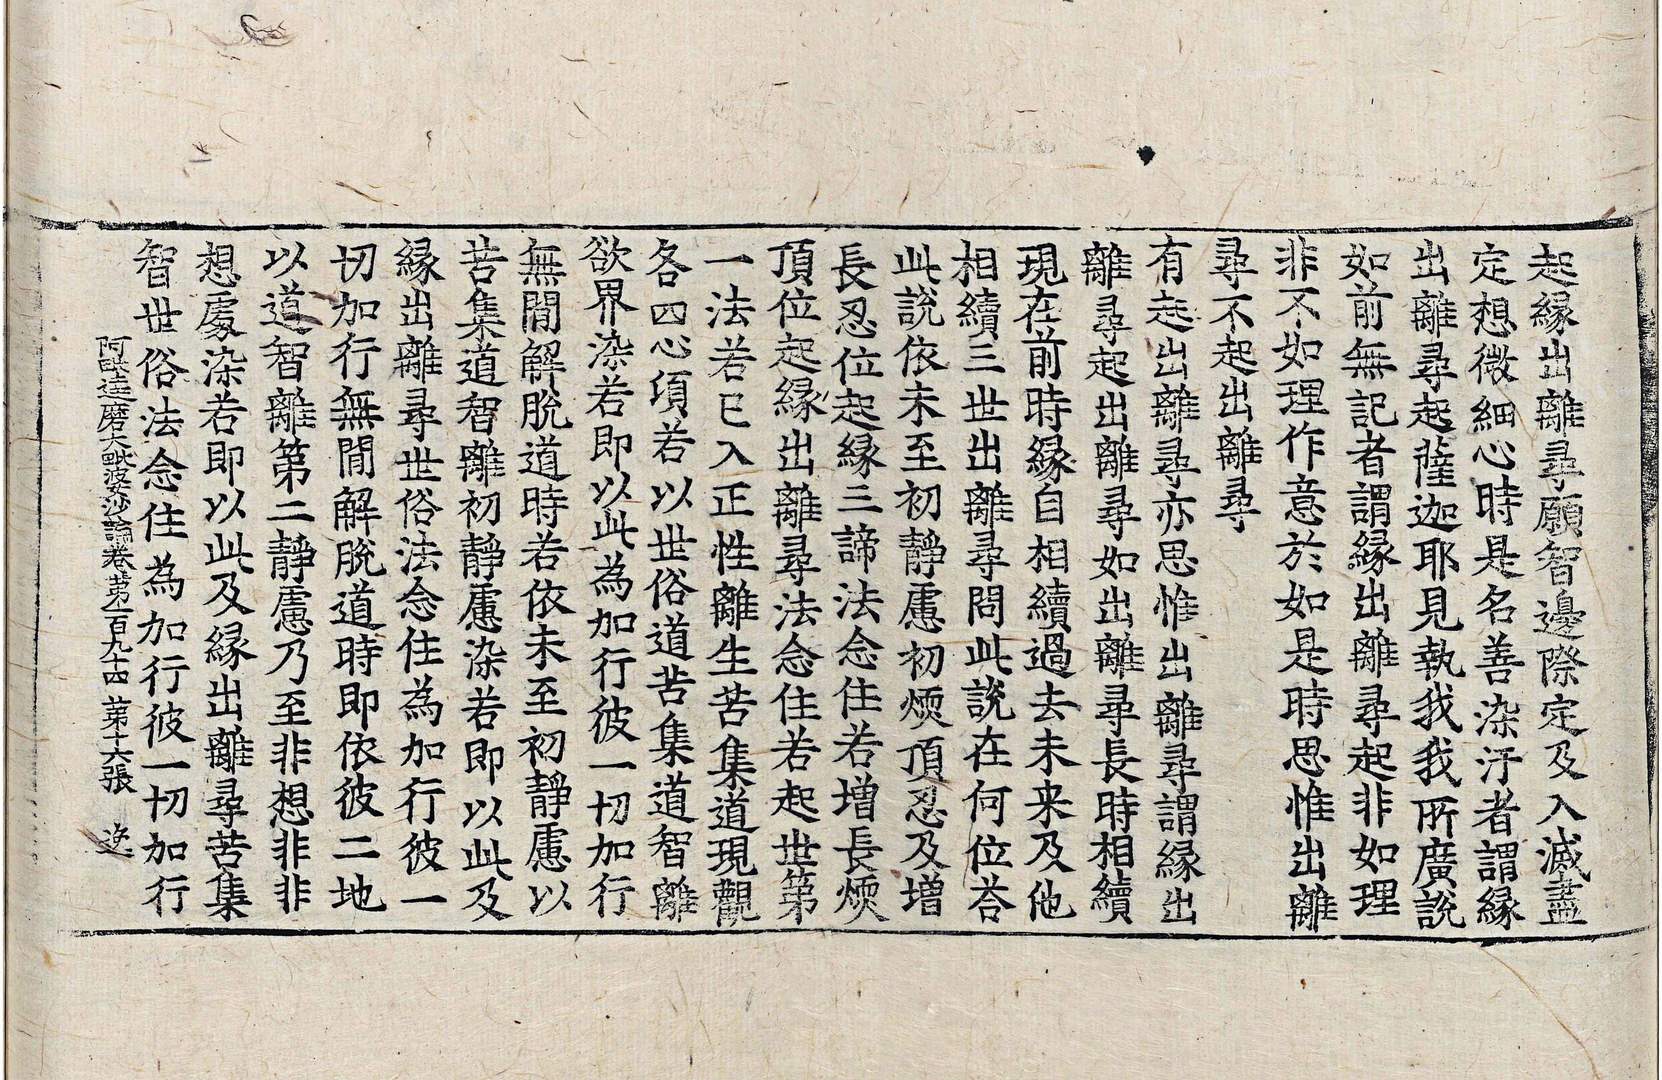 起縁出離尋願智邊際定及入滅盡
定想微細心時是名善染汙者謂縁
出離尋起薩迦耶見執我我所廣說
如前無記者謂縁出離尋起非如理
非不如理作意於如是時思惟出離
尋不起出離尋
有起出離尋亦思惟出離尋謂縁出
離尋起出離尋如出離尋長時相續
現在前時縁自相續過去未来及他
相續三世出離尋問此說在何位荅
此說依未至初靜慮初煗頂忍及增
長忍位起縁三諦法念住若增長煗
頂位起縁出離尋法念住若起世第
一法若已入正性離生苦集道現觀
各四心頃若以世俗道苦集道智離
欲界染若即以此為加行彼一切加行
無閒解脫道時若依未至初靜慮以
苦集道智離初靜慮染若即以此及
縁出離尋世俗法念住為加行彼一
切加行無閒解脫道時即依彼二地
以道智離第二靜慮乃至非想非非
想處染若即以此及縁出離尋苦集
智世俗法念住為加行彼一切加行
阿毗達磨大毗婆沙論卷苐一百九十四 苐十六張